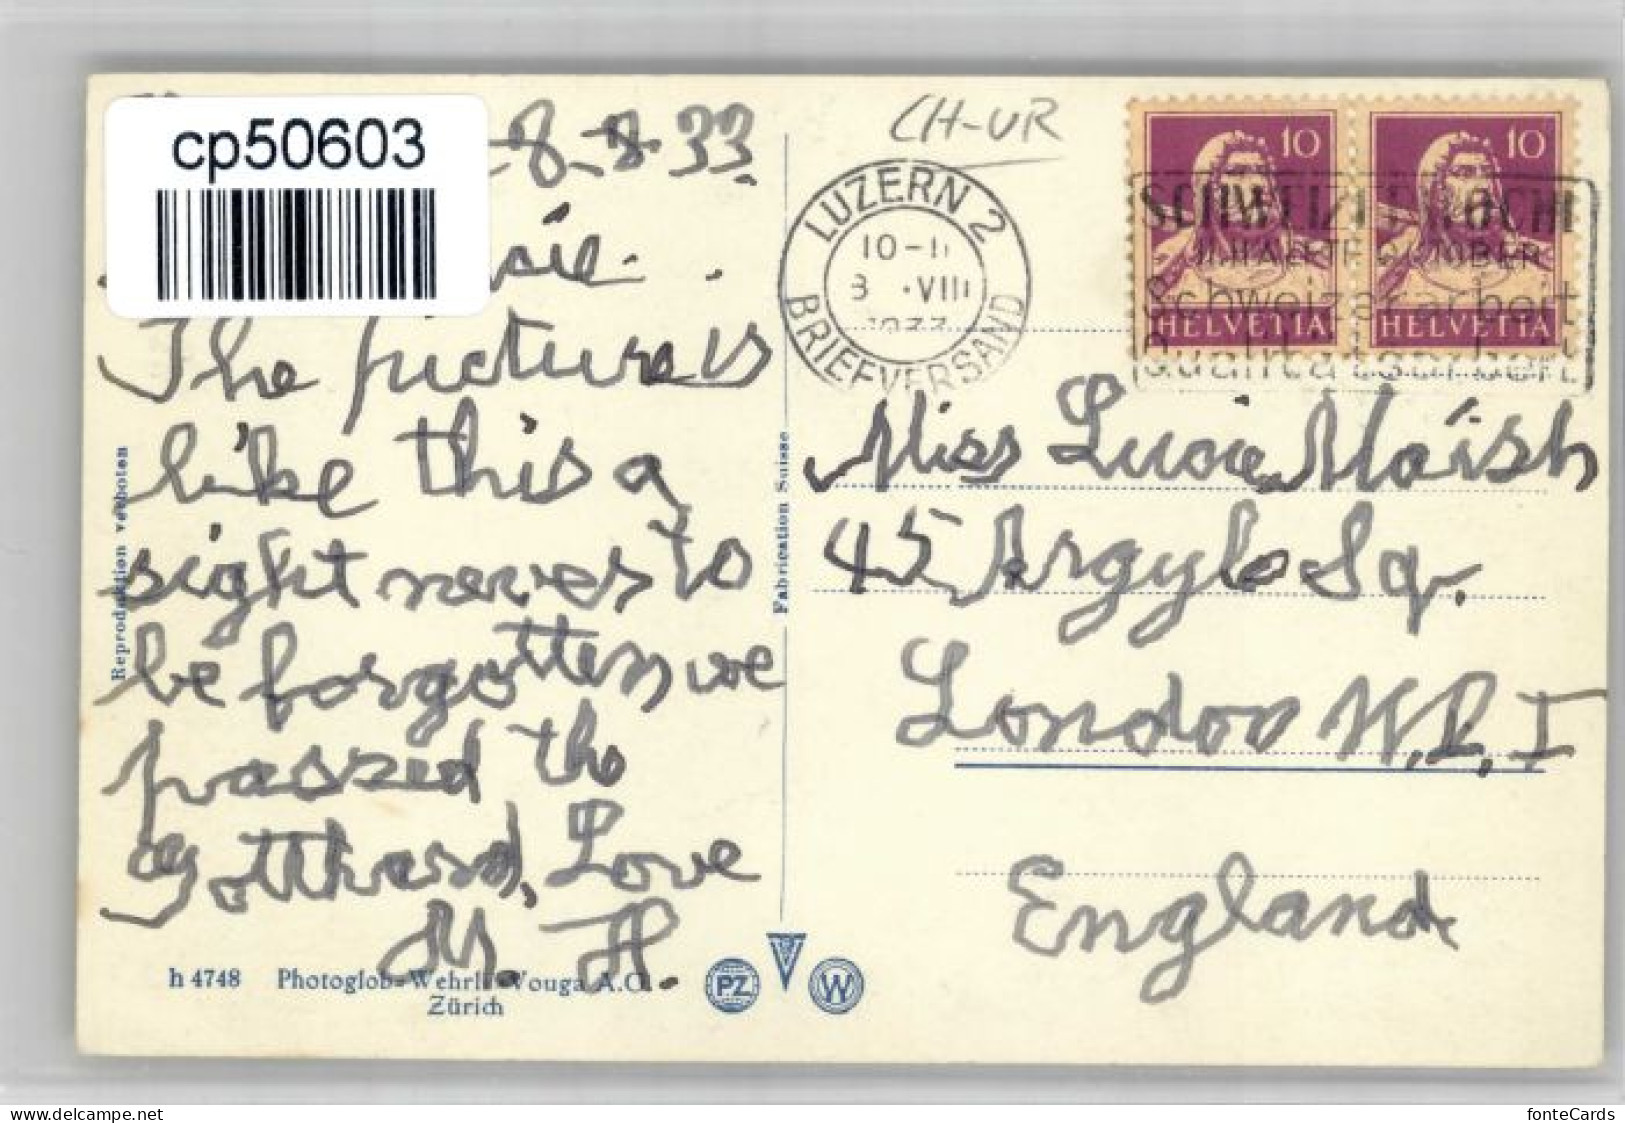 cp50603
-8-8-33.
The picture is
like this a
sight never to
be forgotten we
passed the
Gotthard, Love
M. H.
Reproduktion verboten
Fabrication Suisse
h 4748 Photoglob-Wehrli-Vouga A.G.
Zürich
PZ
W
CH-UR
LUZERN 2
10-11
8.VIII
1933
BRIEFVERSAND
10 10
HELVETIA HELVETIA
SCHWEIZERWOCHE
OKTOBER
Schweizerarbeit
Qualitätsarbeit
Miss Lucie Marsh
45 Argyle Sq.
London W.C.I
England
© delcampe.net
fonteCards